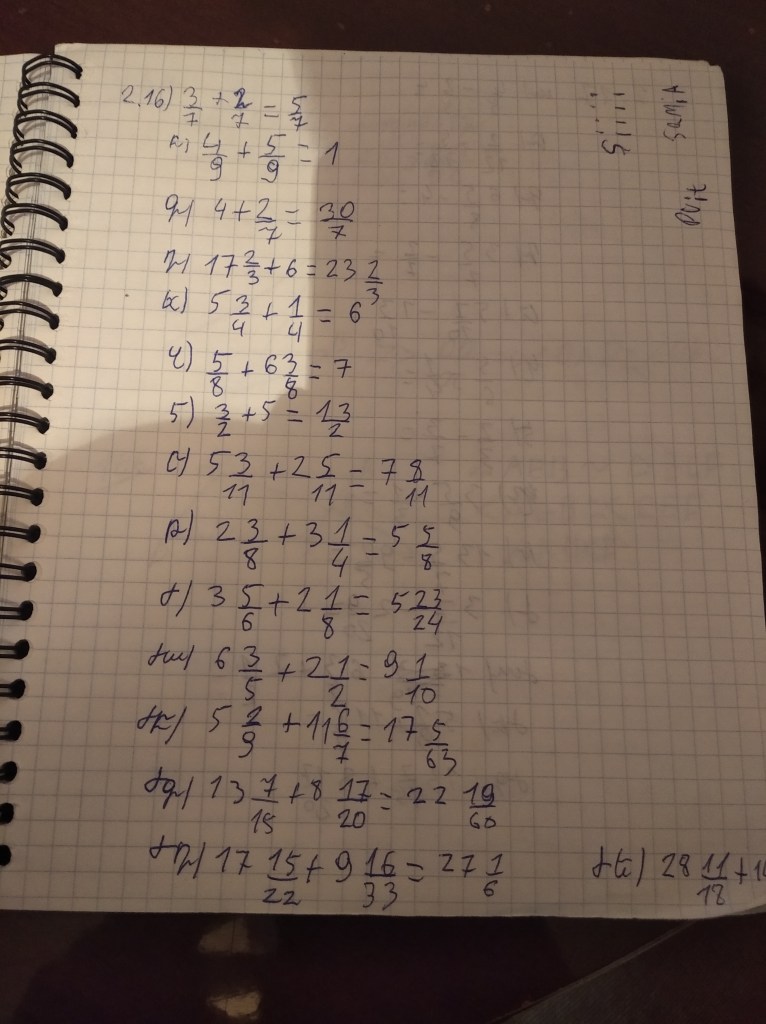 2.16) 3/7 + 2/7 = 5/7
4/9 + 5/9 = 1
4 + 2/7 = 30/7
17 2/3 + 6 = 23 2/3
5 3/4 + 1/4 = 6
5/8 + 6 3/8 = 7
3/2 + 5 = 13/2
5 3/11 + 2 5/11 = 7 8/11
2 3/8 + 3 1/4 = 5 5/8
3 5/6 + 2 1/8 = 5 23/24
6 3/5 + 2 1/2 = 9 1/10
5 2/9 + 11 6/7 = 17 5/63
13 7/15 + 8 17/20 = 22 19/60
17 15/22 + 9 16/33 = 27 1/6
28 11/18 +